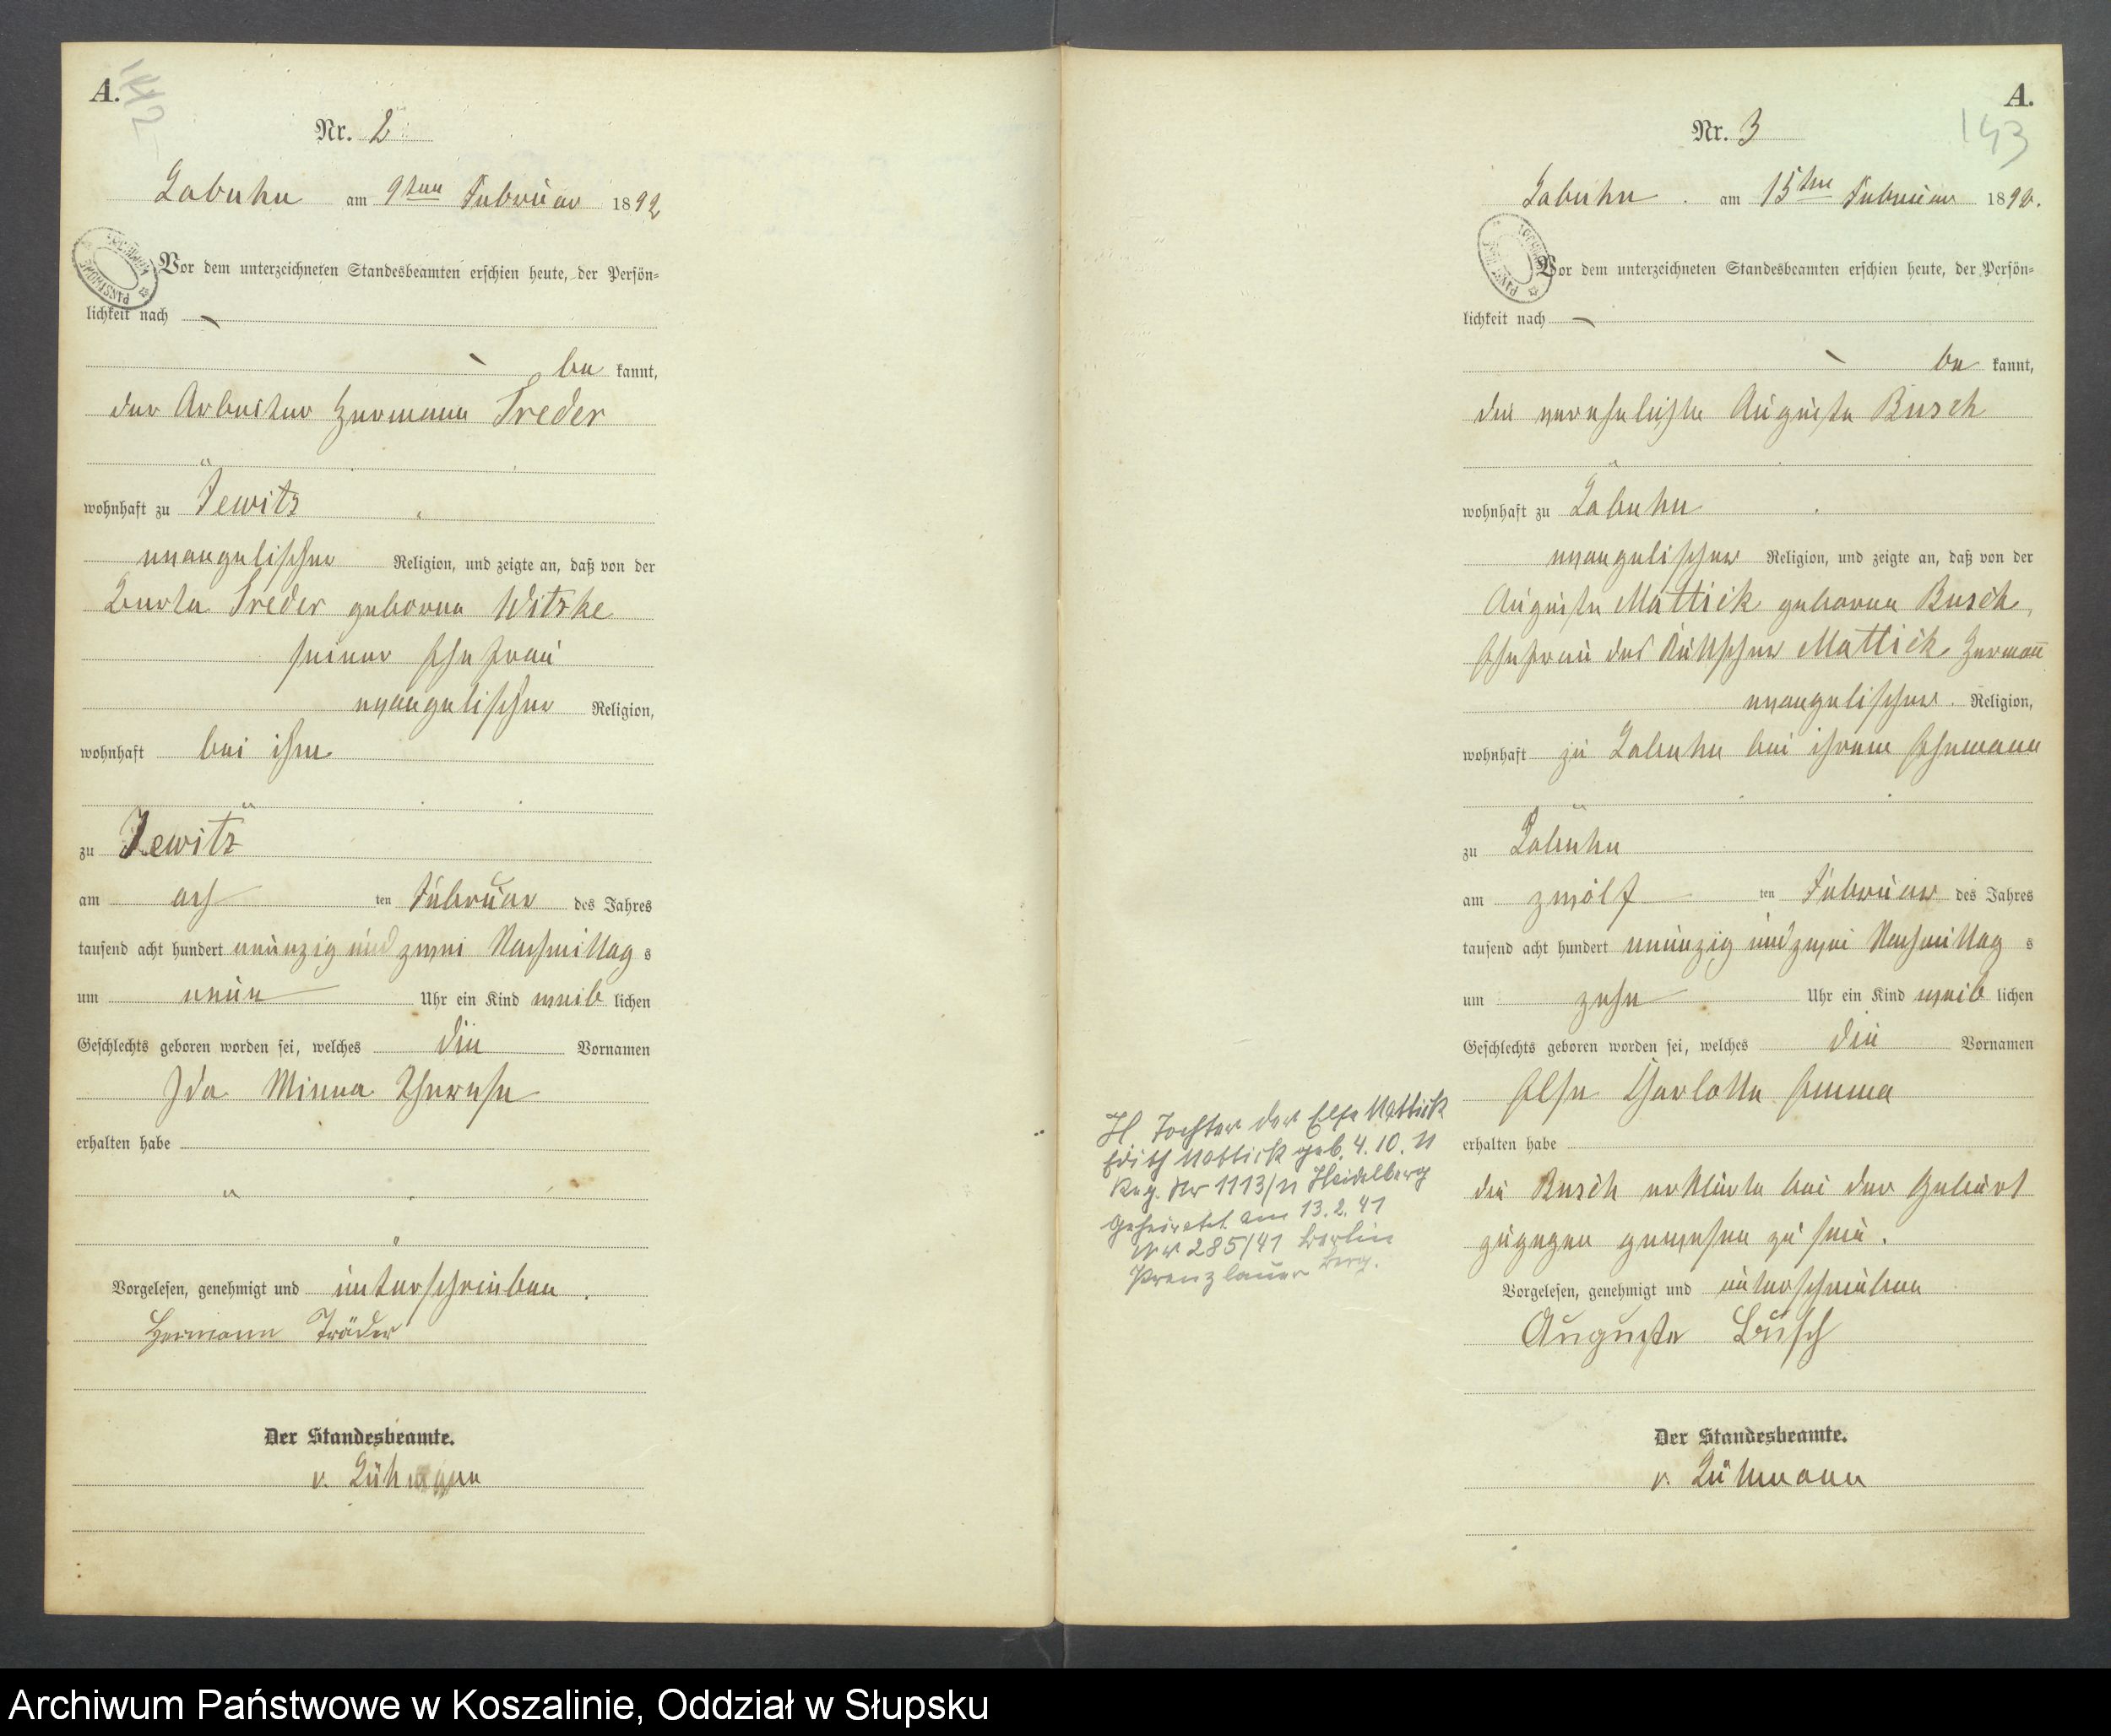 A.
142
Nr. 2
Labuhn am 9ten Februar 1892
Vor dem unterzeichneten Standesbeamten erschien heute, der Persön=
lichkeit nach
be kannt,
der Arbeiter Hermann Treder
wohnhaft zu Jewitz
evangelischer Religion, und zeigte an, daß von der
Treder geborne Witzke
seiner Ehefrau
evangelischer Religion,
wohnhaft bei ihm
zu Jewitz
am acht ten Februar des Jahres
tausend acht hundert neunzig und zwei Nachmittag s
um neun Uhr ein Kind weib lichen
Geschlechts geboren worden sei, welches die Vornamen
Ida Minna Therese
erhalten habe
Vorgelesen, genehmigt und unterschrieben.
Hermann Träder
Der Standesbeamte.
A.
143
Nr. 3
Labuhn am 15ten Februar 1892.
Vor dem unterzeichneten Standesbeamten erschien heute, der Persön=
lichkeit nach
be kannt,
die verehelichte Auguste Busch
wohnhaft zu Labuhn
evangelischer Religion, und zeigte an, daß von der
Auguste Mattick geborne Busch,
Ehefrau des Mattick Hermann
evangelischer Religion,
wohnhaft zu Labuhn bei ihrem Ehemann
zu Labuhn
am zwölf ten Februar des Jahres
tausend acht hundert neunzig und zwei Nachmittag s
um zehn Uhr ein Kind weib lichen
Geschlechts geboren worden sei, welches die Vornamen
Else Charlotte Emma
erhalten habe
die Busch erklärte bei der Geburt
zugegen gewesen zu sein.
Vorgelesen, genehmigt und unterschrieben
Auguste Busch
Der Standesbeamte.
Tochter der Else Mattick
Edith Mattick geb. 4.10.11
Reg. Nr 1113/11 Heidelberg
Geheiratet am 13.2.41
Nr 285/41 Berlin
Prenzlauer Berg.
Archiwum Państwowe w Koszalinie, Oddział w Słupsku